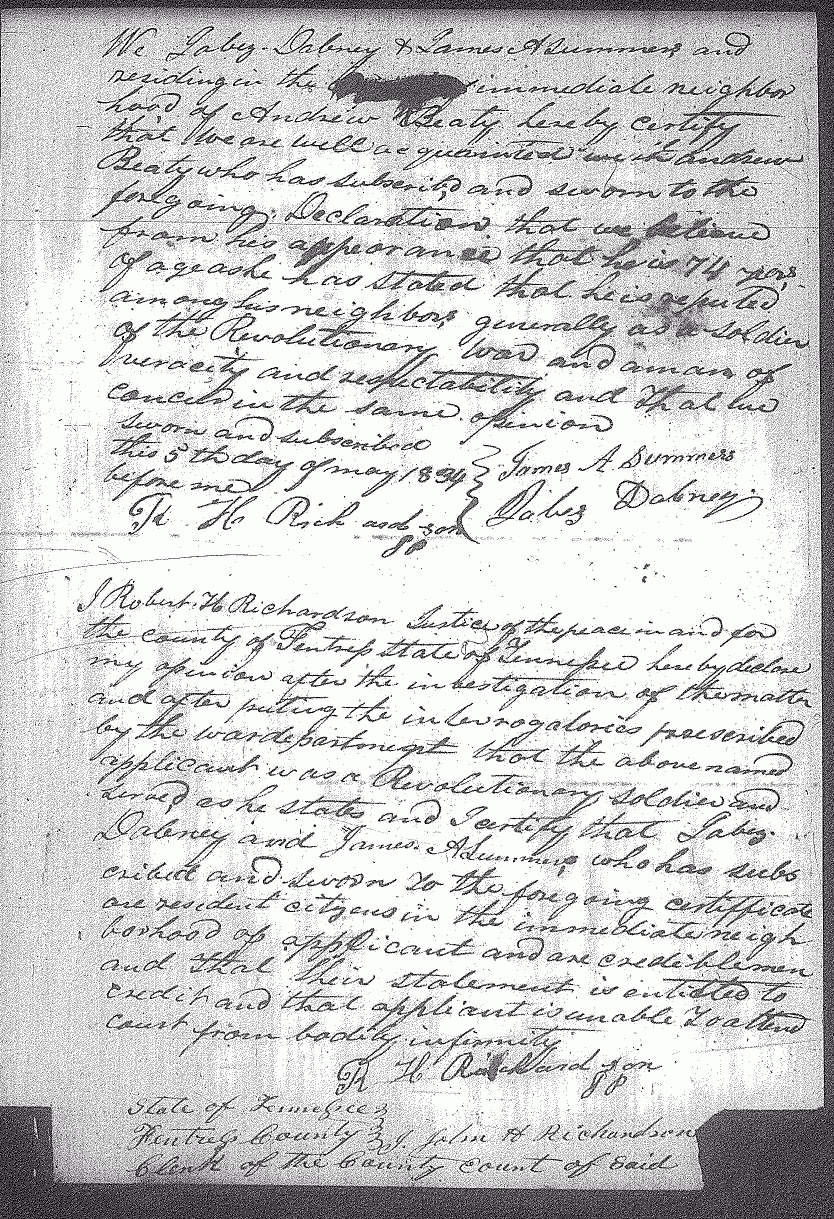 We Jabez Dabney & James A Summers and
residing in the immediate neighbor
hood of Andrew Beaty hereby certify
that we are well acquainted with andrew
Beaty who has subscribd and sworn to the
foregoing Declaration that we believe
from his appearance that he is 74 years
of age as he has stated that he is reputed
among his neighbors generally as a soldier
of the Revolutionary War and a man of
veracity and respectability and that we
concur in the same opinion
sworn and subscribed
this 5th day of may 1834 } James A Summers
before me } Jabez Dabney
R H Richardson
JP
I Robert H Richardson Justice of the peace in and for
the county of Fentress state of Tennessee hereby declare
my opinion after the investigation of the matter
and after puting the interrogatories prescribed
by the war department that the above named
applicant was a Revolutionary soldier and
served as he states and I certify that Jabez
Dabney and James A Summers who has subs
cribed and sworn to the foregoing certifficate
are resident citizens in the immediate neigh
borhood of applicant and are credible men
and that their statement is entitled to
credit and that appliant is unable to attend
court from bodily infirmity
R H Richardson
JP
State of Tennessee }
Fentress County } I John H Richardson
Clerk of the County court of Said